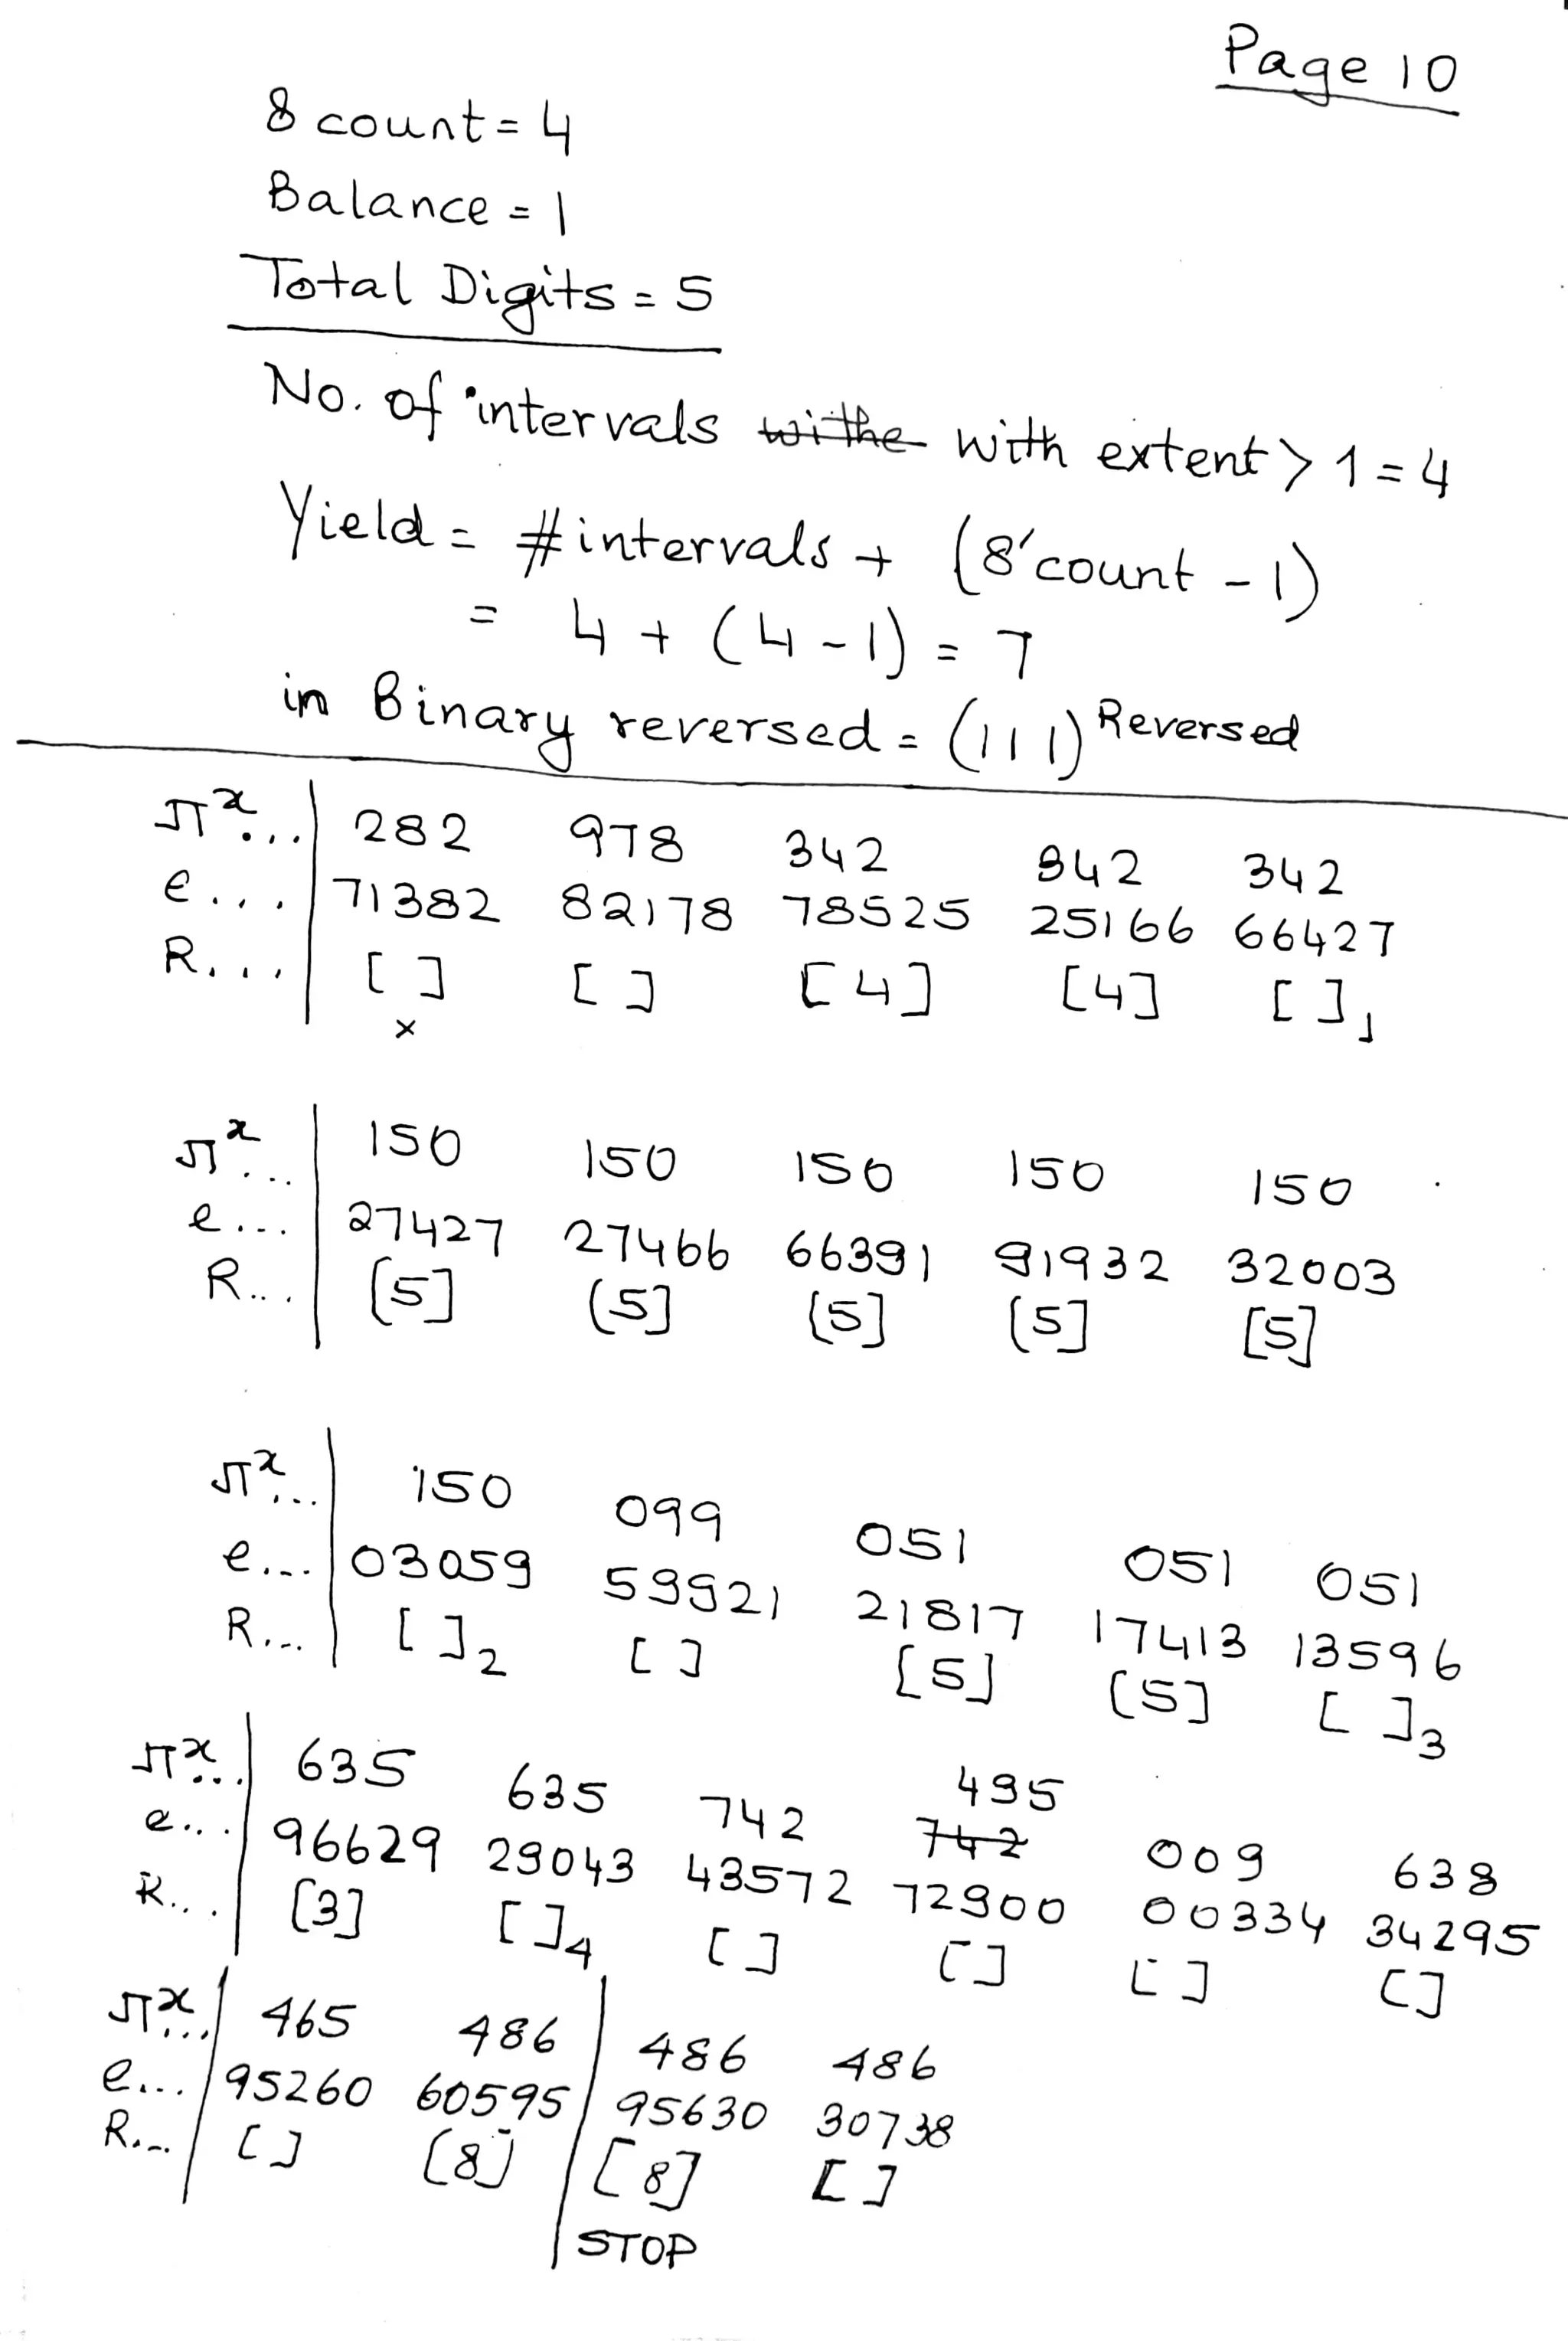 Page 10
8 count = 4
Balance = 1
Total Digits = 5
No. of intervals withe with extent > 1 = 4
Yield = # intervals + (8' count - 1)
= 4 + (4 - 1) = 7
in Binary reversed = (111) Reversed
π^x... | 282 978 342 842 342
e.... | 71382 82178 78525 25166 66427
R.... | [ ] [ ] [4] [4] [ ]1
x
π^x... | 150 150 150 150 150
e.... | 27427 27466 66391 91932 32003
R... | [5] [5] [5] [5] [5]
π^x... | 150 099 051 051 051
e.... | 03059 59921 21817 17413 13596
R.... | [ ]2 [ ] [5] [5] [ ]3
π^x... | 635 635 742 742 495 009 638
e... | 96629 29043 43572 72900 00334 34295
R... | [3] [ ]4 [ ] [ ] [ ] [ ]
π^x... | 465 486 | 486 486
e.... | 95260 60595 | 95630 30738
R.... | [ ] [8] | [8] [ ]
STOP